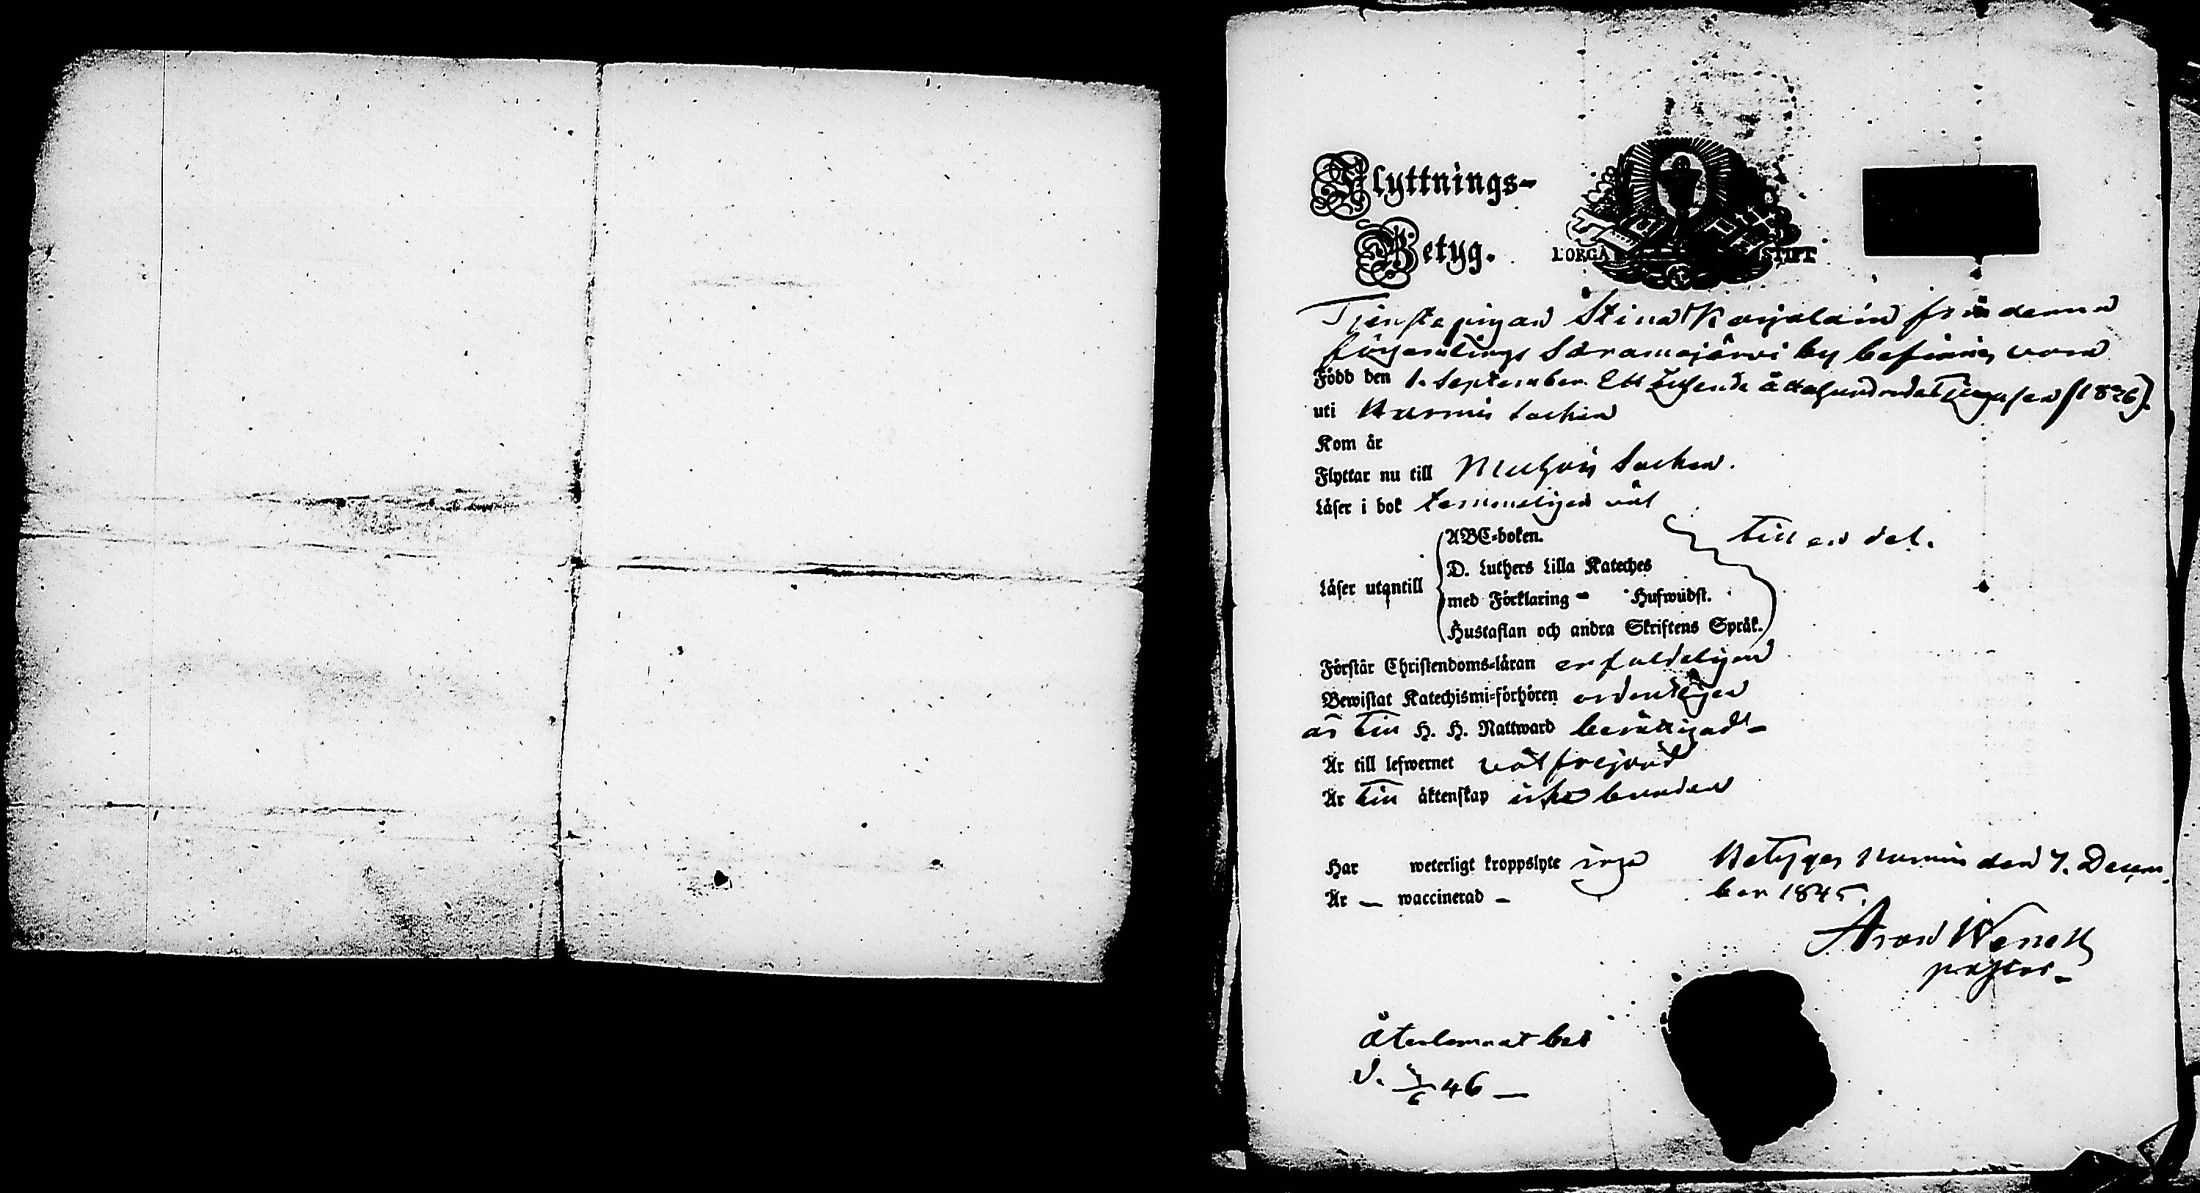 Flyttnings-
Betyg.
BORGÅ STIFT
Tjenstepigan Stina Karjalain från denna
församlings Saramojärwi by befinnes vara
Född den 1. September Ett tusende åttahundrade tjugusex (1826).
uti Nurmis Sochen
Kom år
Flyttar nu till Sochen.
Läser i bok temmeligen väl
ABC-boken. till en del.
D. Luthers Lilla Kateches
Läser utantill med Förklaring - Hufwudst.
Hustaflan och andra Skriftens Språk.
Förstår Christendoms-läran enfaldeligen
Bewistat Katechismi-förhören ordentligen
är till H. H. Nattward berättigad -
Är till lefwernet välfrejdad
Är till äktenskap icke bunden
Har weterligt kroppslyte inga
Är — waccinerad -
Betygar Nurmis den 7. Decem-
ber 1845.
Aron
pastor.
återlemnat bet
d. 46 —